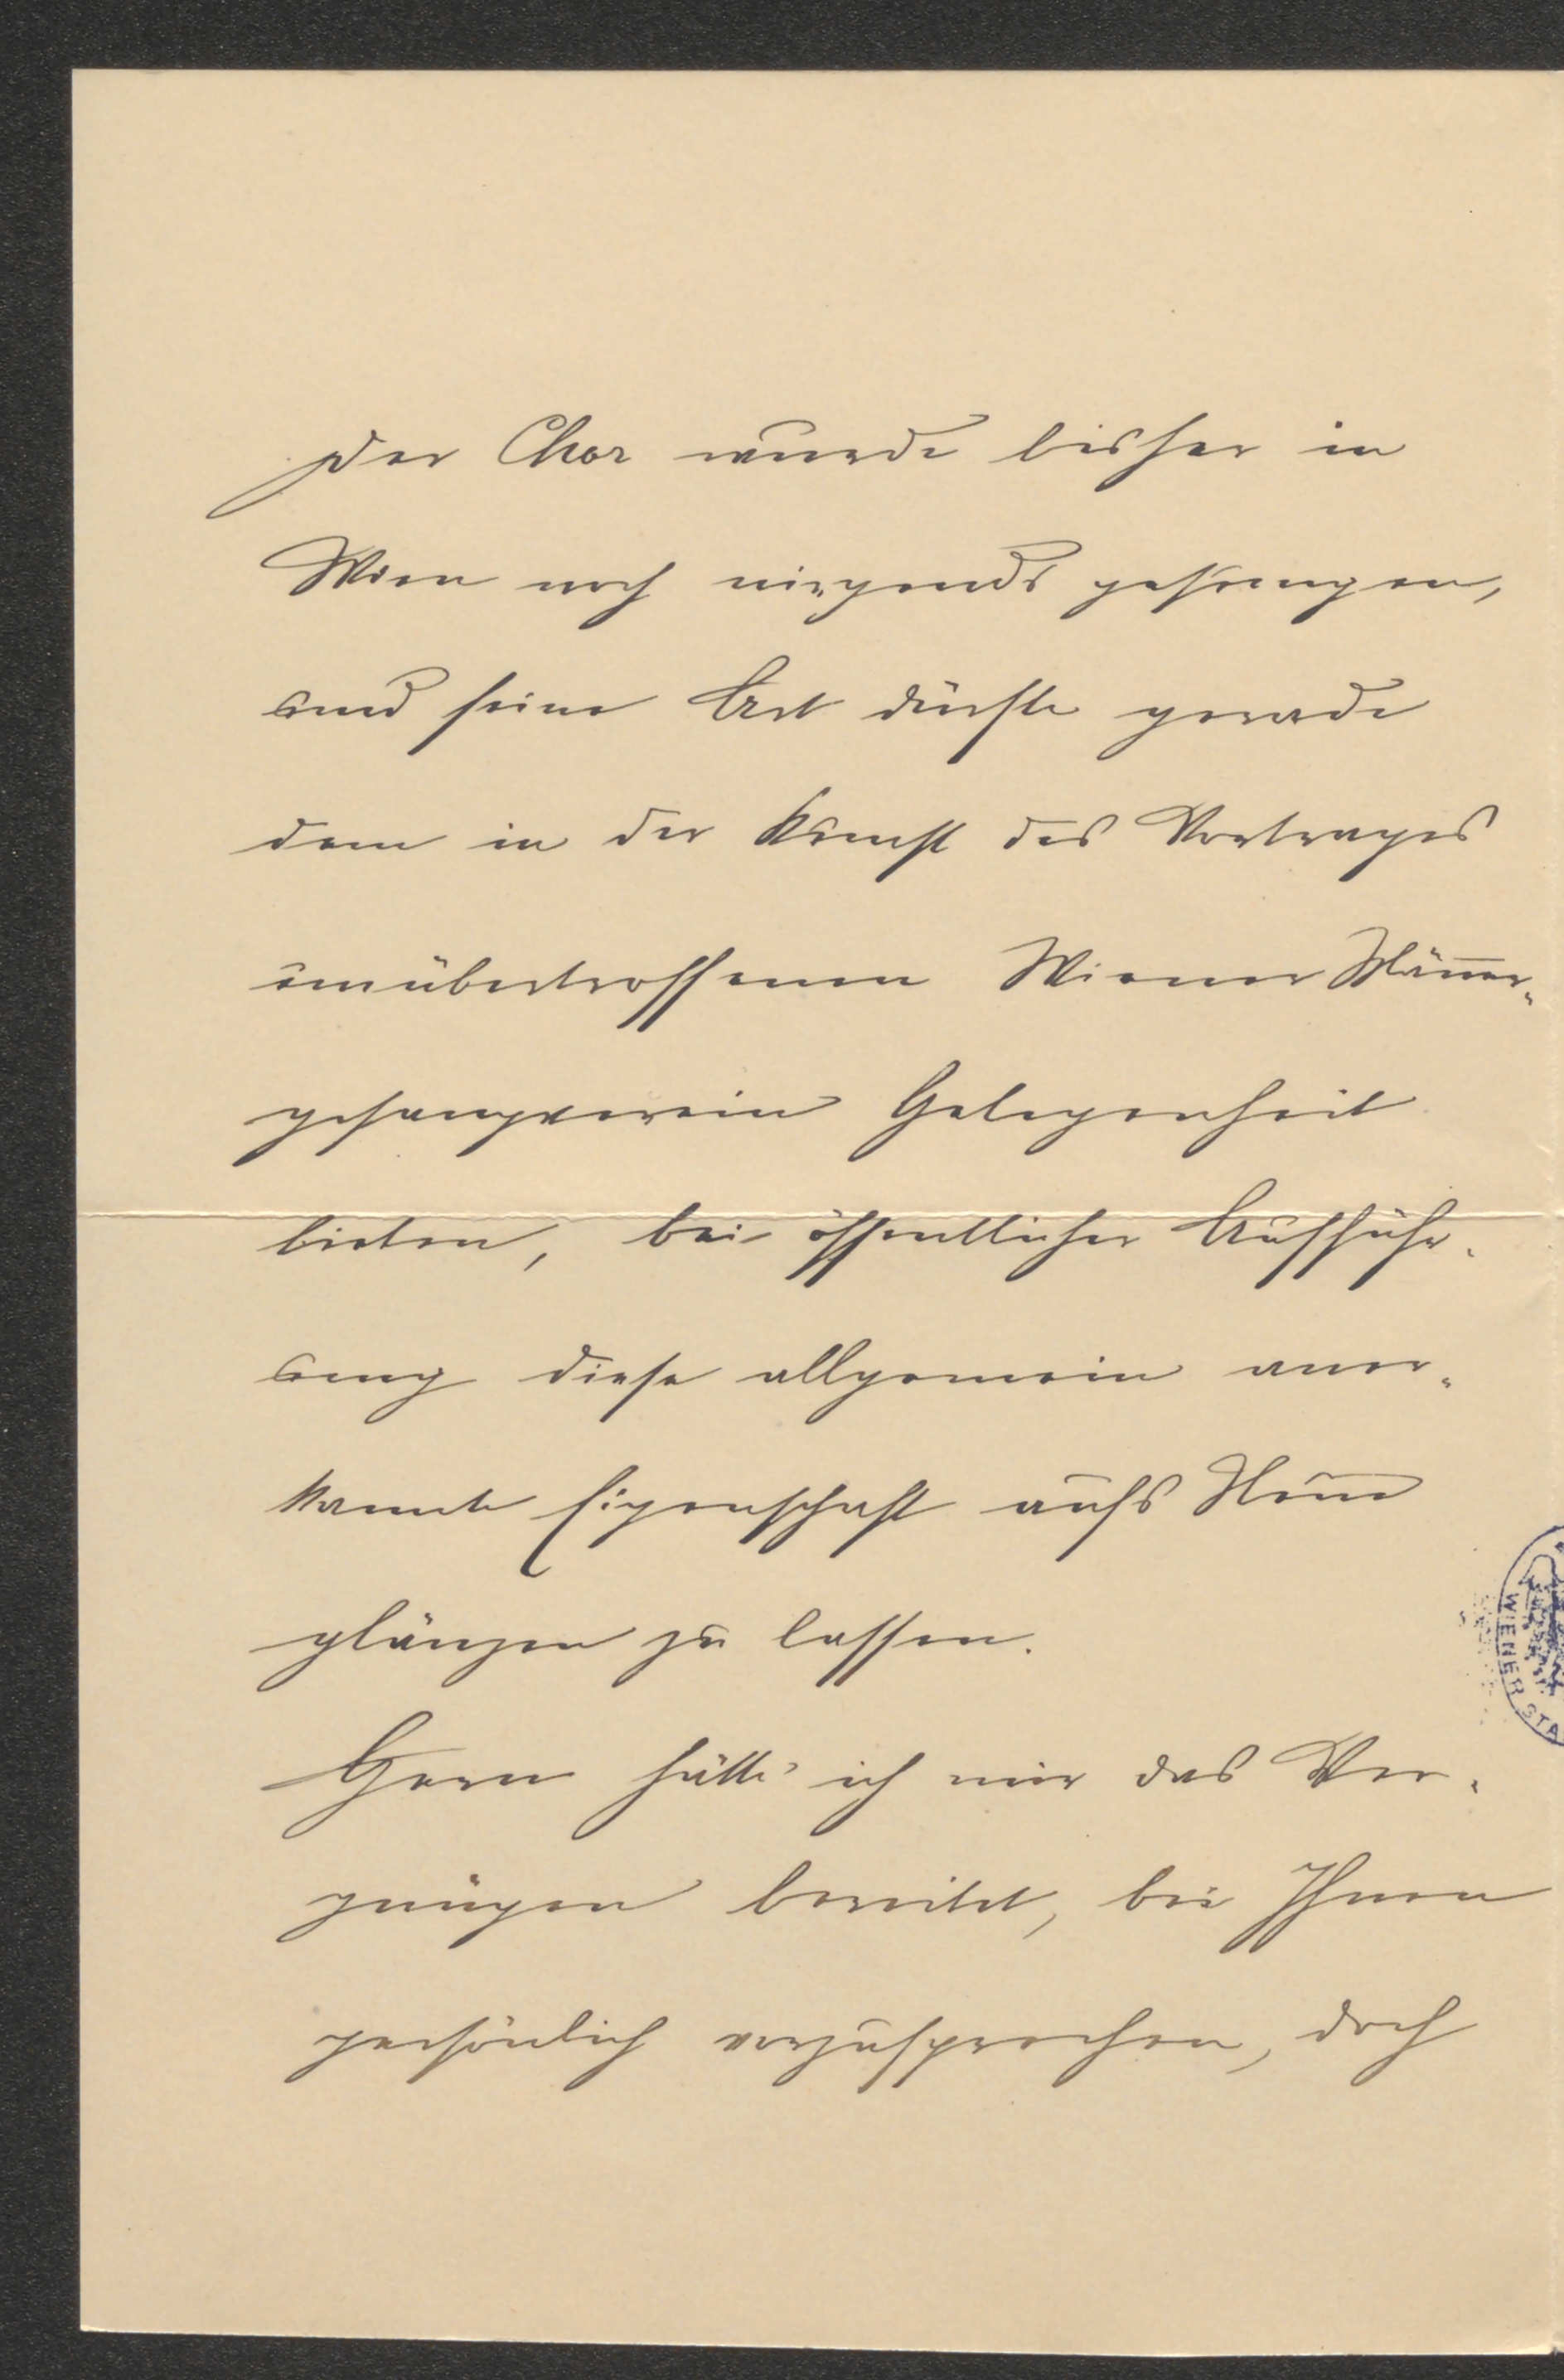 Der Chor wurde bisher in
Wien noch nirgends gesungen,
und seine Art dürfte gerade
dem in der Kunst des Vortrages
unübertroffenen Wiener Männer-
gesangverein Gelegenheit
bieten, bei öffentlicher Aufführ-
ung diese allgemein aner-
kannte Eigenschaft aufs Neue
glänzen zu lassen.
Gern hätte ich mir das Ver-
gnügen bereitet, bei Ihnen
persönlich vorzusprechen, doch
WIENER STA